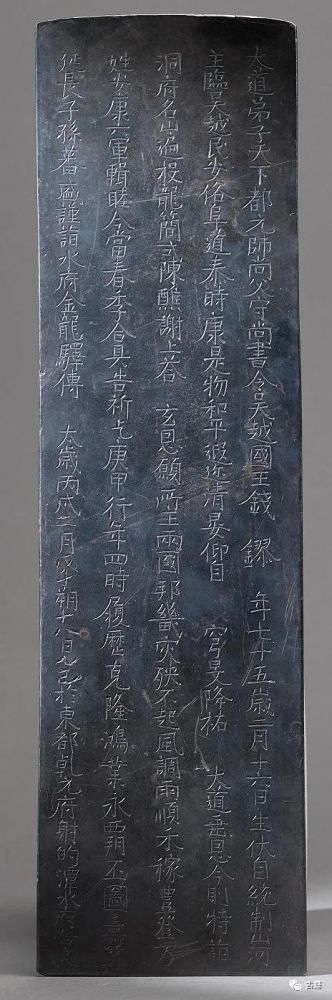 大道弟子天下都元帥尚父守尚書令吳越國王錢 鏐 年七十五歲二月十六日生伏自統制山
主臨吳越民安俗阜道泰時康是物和平遐迩清晏仰自 穹旻降祐 大道垂恩今則特詣
洞府名山遍投龍簡陳醮謝上荅 玄恩願所主兩國邦畿灾殃不起風調雨順禾稼豐登万
姓安康六軍輯睦今當春季合具告祈乞庚申行年四時履歷克隆鴻業永霸丕圖壽
延長子孫蕃盛謹詣水府金龍驛傳 太歲丙戌三月戊子朔十八日乙巳於東都乾元府射的潭水府
古籍